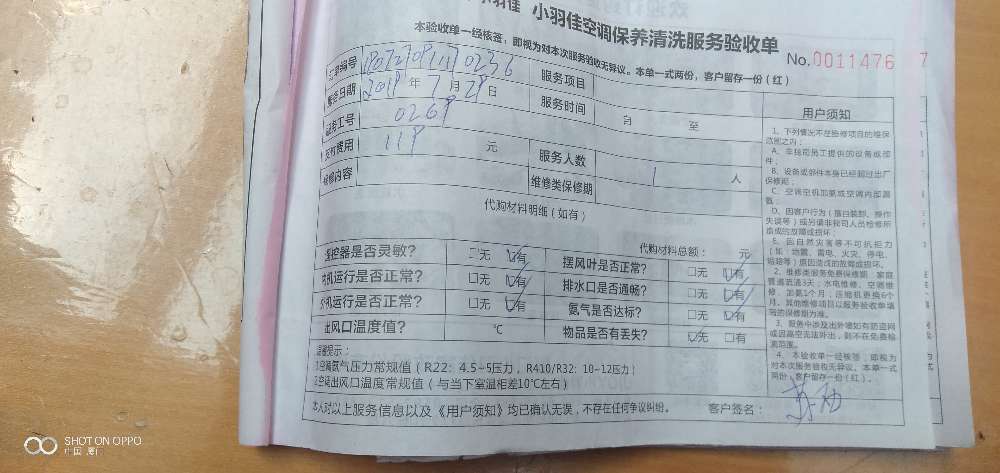 小羽佳 小羽佳空调保养清洗服务验收单
本验收单一经核签，即视为对本次服务验收无异议。本单一式两份，客户留存一份（红）
No.0011476
编号
服务项目
日期 2019 年 7 月 29 日
服务时间 自 至
工号 0269
费用 119 元
服务人数 1 人
检修内容
维修类保修期
代购材料明细（如有）
代购材料总额： 元
遥控器是否灵敏？ □无 ☑有
摆风叶是否正常？ □无 ☑有
内机运行是否正常？ □无 ☑有
排水口是否通畅？ □无 ☑有
外机运行是否正常？ □无 ☑有
氨气是否达标？ □无 ☑有
出风口温度值？ ℃
物品是否有丢失？ ☑无 □有
温馨提示：
1空调氨气压力常规值（R22：4.5-5压力，R410/R32：10-12压力）
2空调出风口温度常规值（与当下室温相差10℃左右）
本人对以上服务信息以及《用户须知》均已确认无误，不存在任何争议纠纷。
客户签名：
用户须知
1、下列情况不在检修项目的维保
范围之内：
A、非我司员工提供的设备或部
件；
B、设备或部件本身已经超过出厂
保修期；
D、因客户行为（擅自装卸、操作
失误等）或另请非我司人员检修所
造成的故障或损坏；
E、因自然灾害等不可抗拒力
（如：地震、雷电、火灾、停电、
2、维修类服务免费保修期：家庭
管道疏通3天；水电维修、空调维
修、加氨1个月；压缩机更换6个
月。其他维修项目以服务验收单填
写的保修期为准。
3、服务中涉及出外墙如有防盗网
或因高空无法外出，则不在免费检
4、本验收单一经核签，即视为
对本次服务验收无异议。本单一式
两份，客户留存一份（红）。
SHOT ON OPPO
中国 厦门